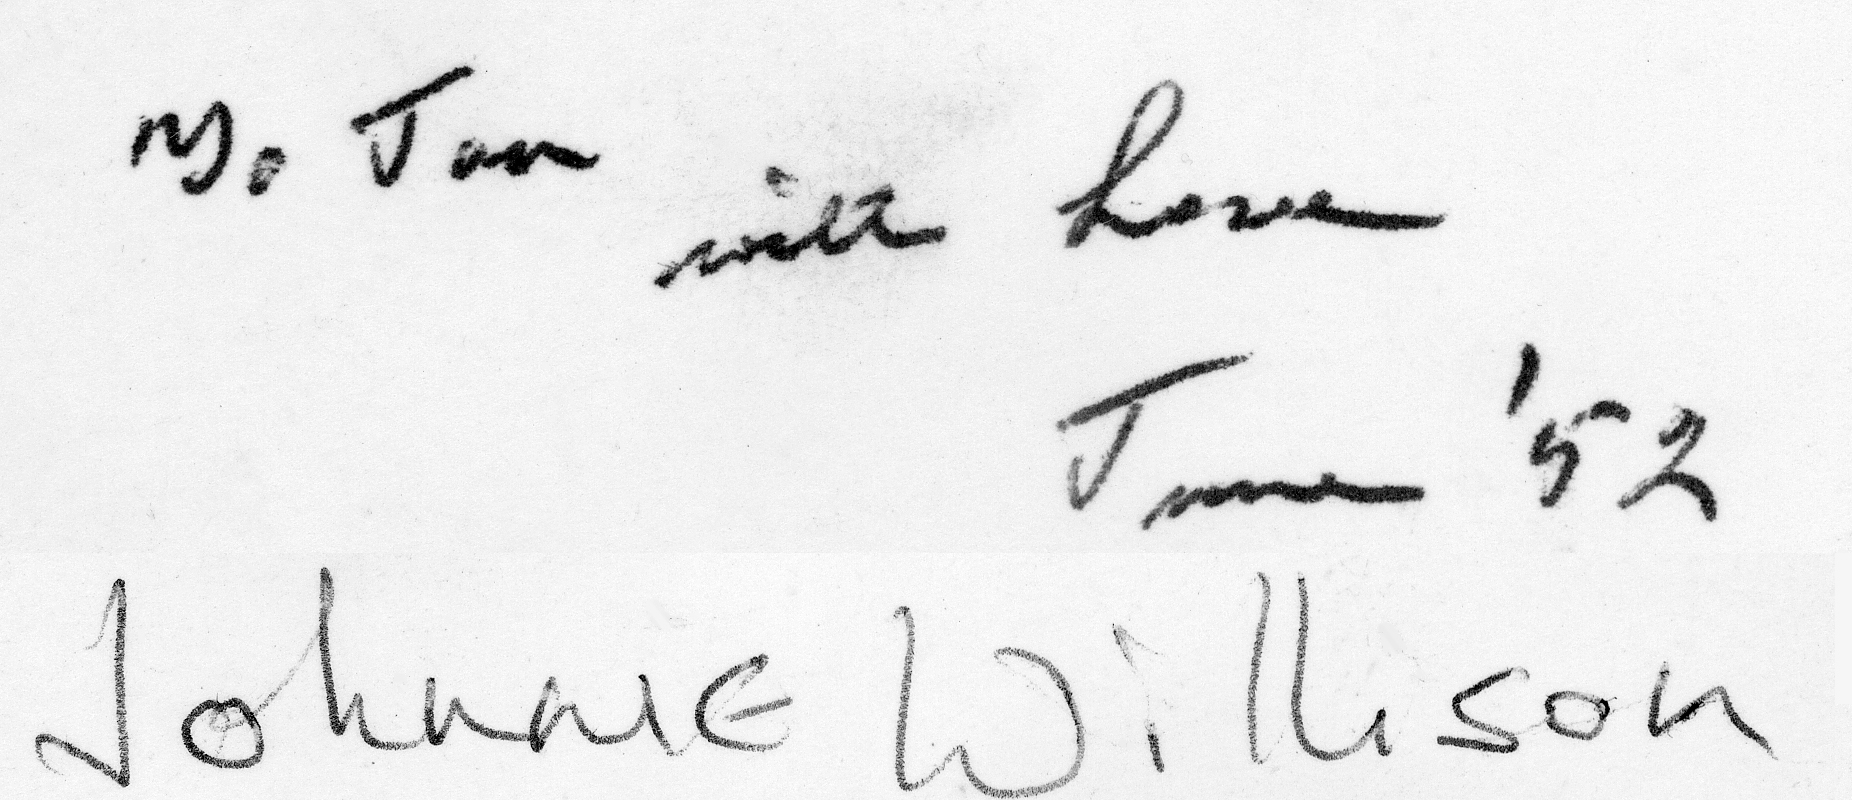 Jan with love
June '52
Johnnie Willison